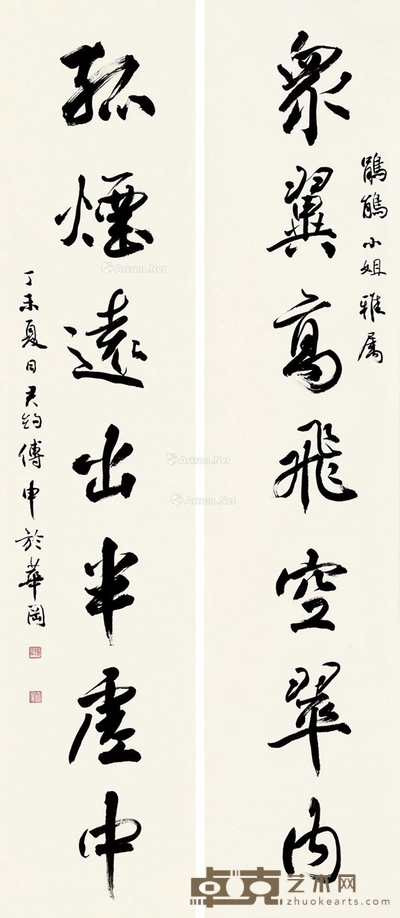 衆翼高飛空翠內
鵑鵑小姐雅属
孤煙遠出半虛中
丁未夏日君約傅申於華岡
Artron.Net
Artron.Net
Artron.Net
Artron.Net
卓克艺术网
zhuokearts.com